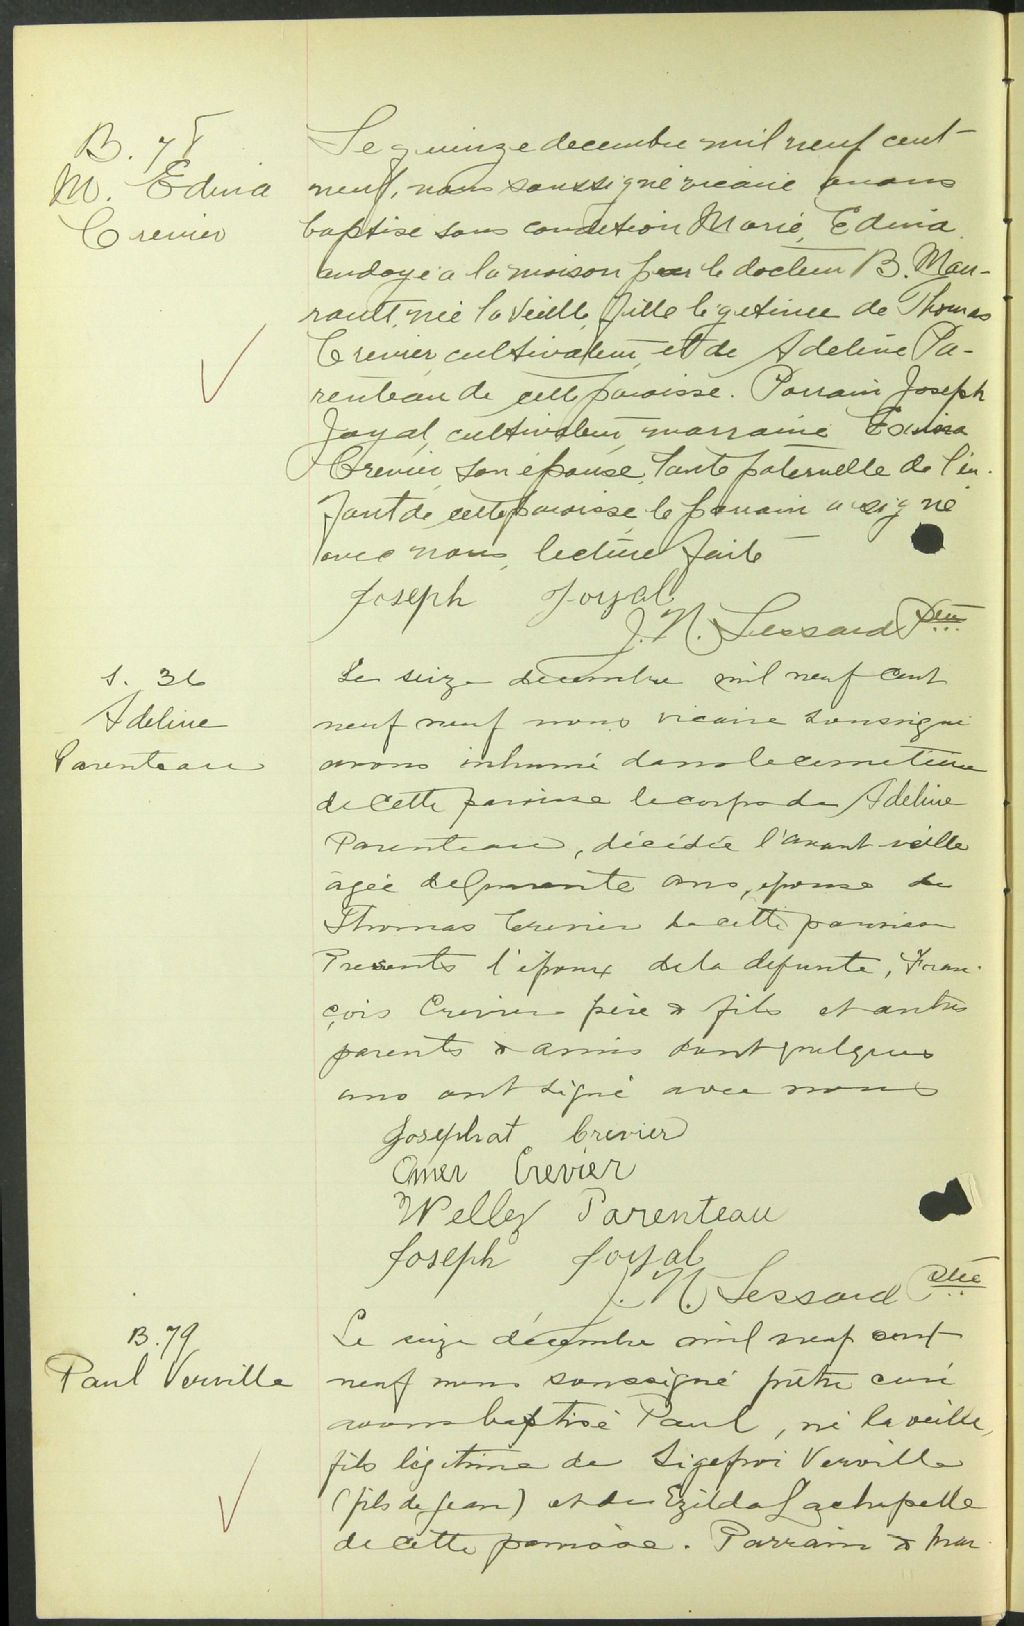 B. 78
M. Edina
Crevier
Le quinze decembre mil neuf cent
neuf, nous soussigné vicaire avons
baptisé sous condition Marie, Edina
ondoyé a la maison par le docteur B. Mau-
rault, née la veille, fille légitime de Thomas
Crevier cultivateur et de Adeline Pa-
renteau de cette paroisse. Parrain Joseph
Joyal, cultivateur, marraine
Crevier son épouse, tante paternelle de l'en-
fant de cette paroisse, le parrain a signé
avec nous, lecture faite
Joseph Joyal
J. N. Lessard Ptre
S. 36
Adeline
Parenteau
Le seize decembre mil neuf cent
neuf neuf nous vicaire soussigné
avons inhumé dans le cimetière
de cette paroisse le corps de Adeline
Parenteau, décédée l'avant veille
agée de quarante ans, épouse de
Thomas Crevier de cette paroisse
Presents l'époux de la defunte, Fran-
çois Crevier père & fils et autres
parents & amis dont quelques
uns ont signé avec nous
Josephat Crevier
Omer Crevier
Welley Parenteau
Joseph Joyal
J. N. Lessard Ptre
B. 79
Paul Verville
Le seize décembre mil neuf cent
neuf nous soussigné prêtre curé
avons baptisé Paul, né la veille,
fils légitime de Sigefroi Verville
(fils de Jean) et de Ezilda Lachapelle
de cette paroisse. Parrain & mar-